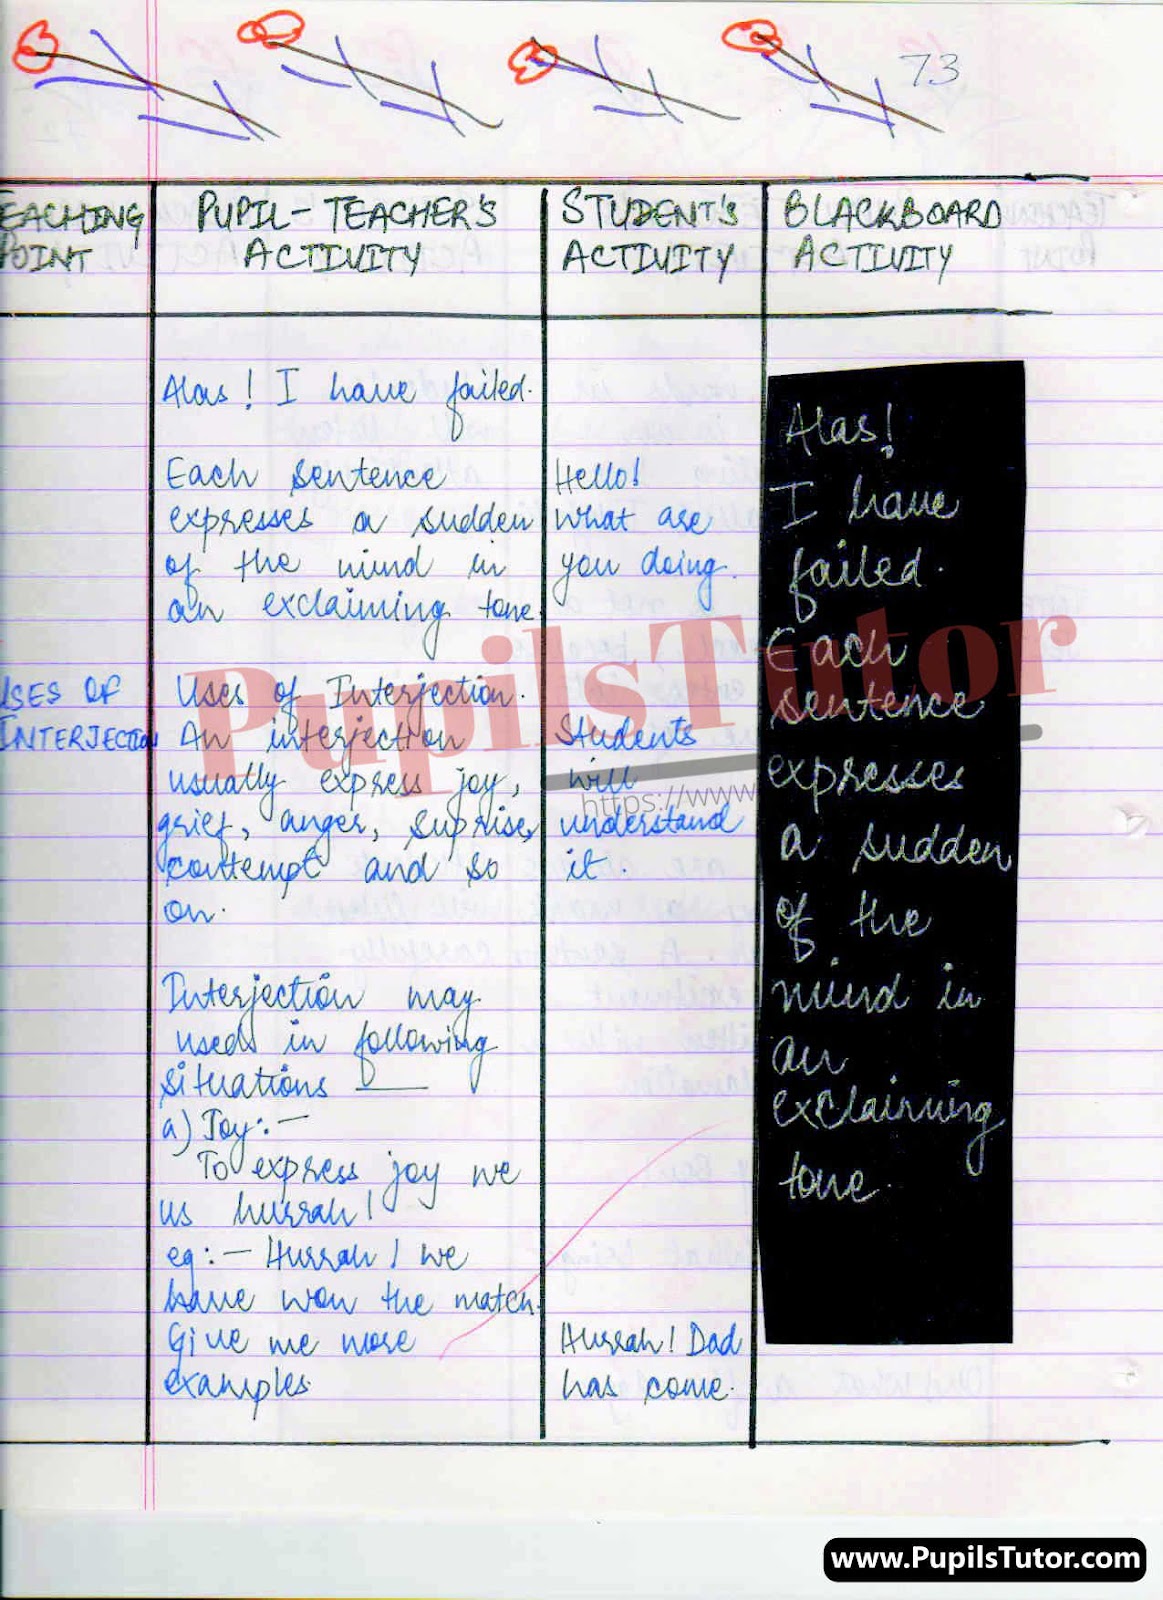 73
EACHING
POINT
PUPIL-TEACHER'S
ACTIVITY
STUDENT'S
ACTIVITY
BLACKBOARD
ACTIVITY
Alas! I have failed.
Each sentence
expresses a sudden
of the mind in
an exclaiming tone.
Hello!
What are
you doing.
USES OF
INTERJECTION
Uses of Interjection.
An interjection
usually express joy,
grief, anger, suprise,
contempt and so
on.
Students
will
understand
it.
Interjection may
used in following
situations
a) Joy:-
To express joy we
us hurrah!
eg:- Hurrah! We
have won the match.
Give me more
examples.
Hurrah! Dad
has come.
Alas!
I have
failed.
Each
sentence
expresses
a sudden
of the
mind in
an
exclaiming
tone.
PupilsTutor
https://www
www.PupilsTutor.com